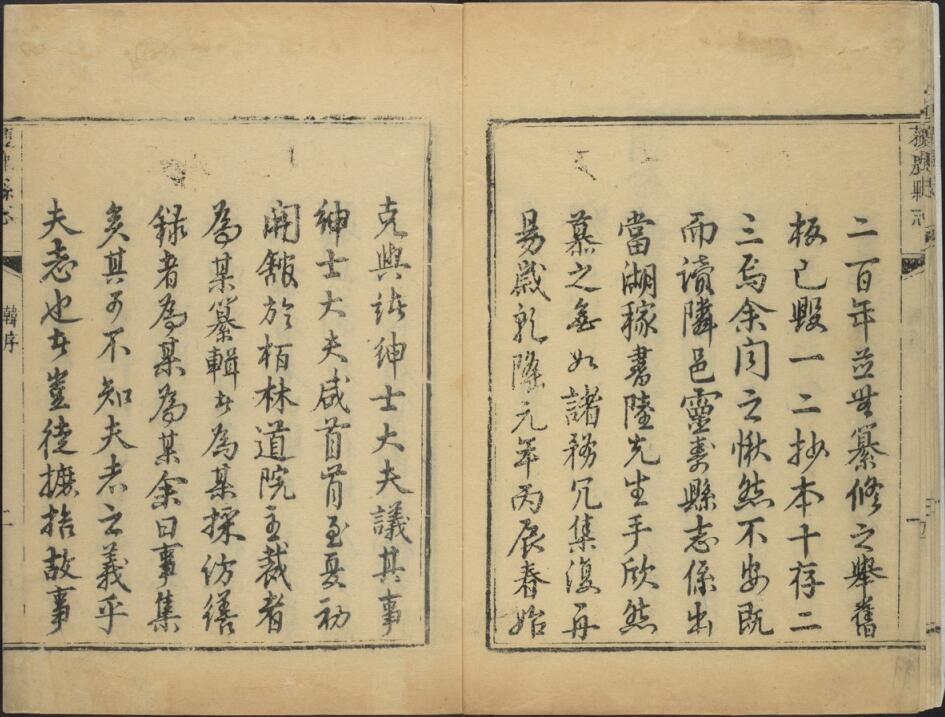 二百年並無纂修之舉舊
板已毀一二抄本十存二
三焉余閱之愀然不安既
而讀隣邑靈壽縣志係出
當湖稼書陸先生手欣然
慕之無如諸務冗集復再
易歲乾隆元年丙辰春始
克與諸紳士大夫議其事
紳士大夫咸首肯至夏初
開舘於栢林道院主裁者
為某纂輯者為某採仿繕
錄者為某為某余曰事集
矣其可不知夫志之義乎
夫志也者豈徒摭拾故事
縣志
韓序
二